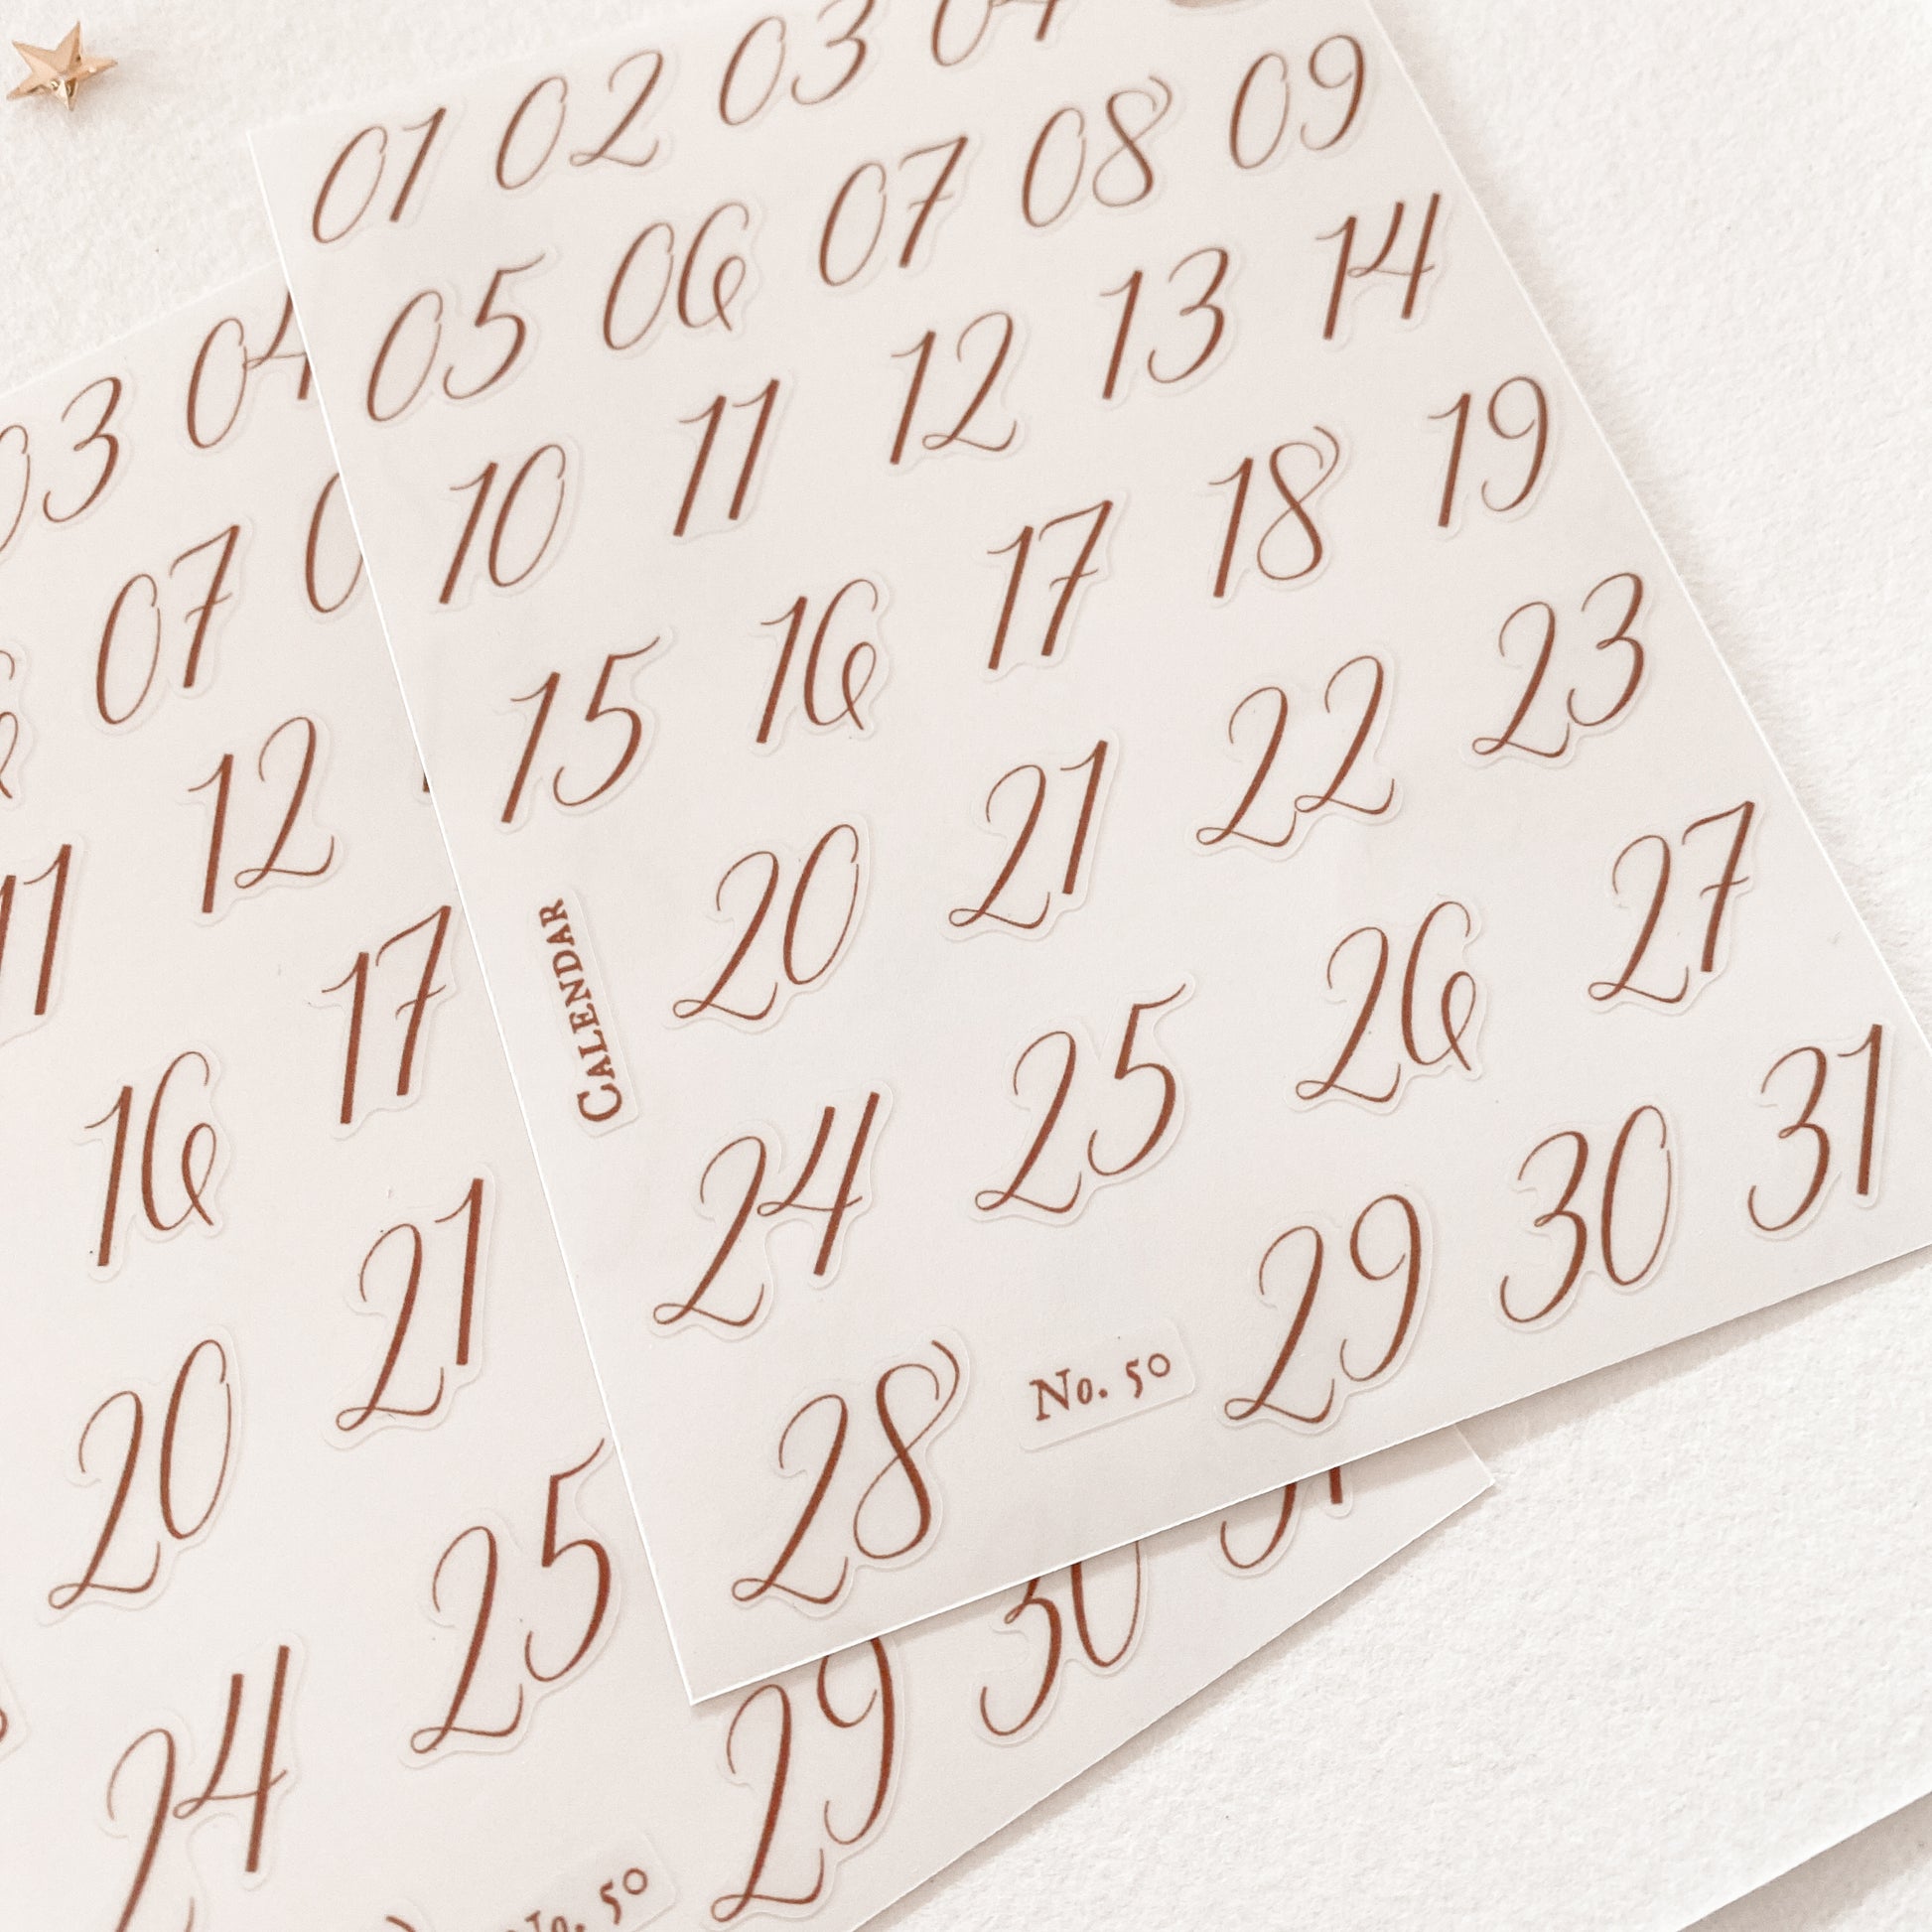 01 02 03 04
05 06 07 08 09
10 11 12 13 14
15 16 17 18 19
CALENDAR
20 21 22 23
24 25 26 27
28 No. 50 29 30 31
03 04
07
11 12
16 17
20 21
24 25
No. 50 29 30 31